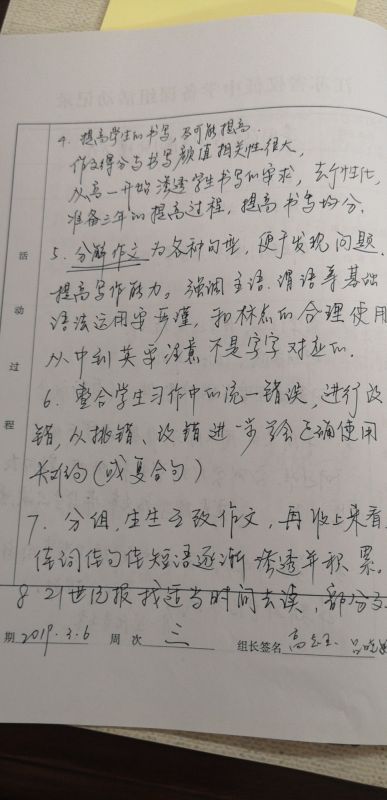 4. 提高学生的书写,尽可能提高.
作文得分与书写颜值相关性很大,
从高一开始渗透学生书写的要求,去个性化,
准备三年的提高过程,提高书写均分.
5. 分解作文为各种句型,便于发现问题.
提高写作能力。强调主语.谓语等基础
语法运用要严谨,和标点的合理使用
从中到英要注意不是字字对应的.
6. 整合学生习作中的统一错误,进行改
错,从挑错、改错进一步学会正确使用
长难句(或复合句)
7. 分组,生生互改作文,再收上来看
佳词佳句佳短语逐渐渗透并积累.
8 21世纪报找适当时间去读,部分文
活动过程
期 2019.3.6 周次 三 组长签名